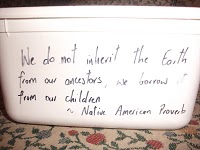 We do not inherit the Earth
from our ancestors, we borrow it
from our children
~ Native American Proverb